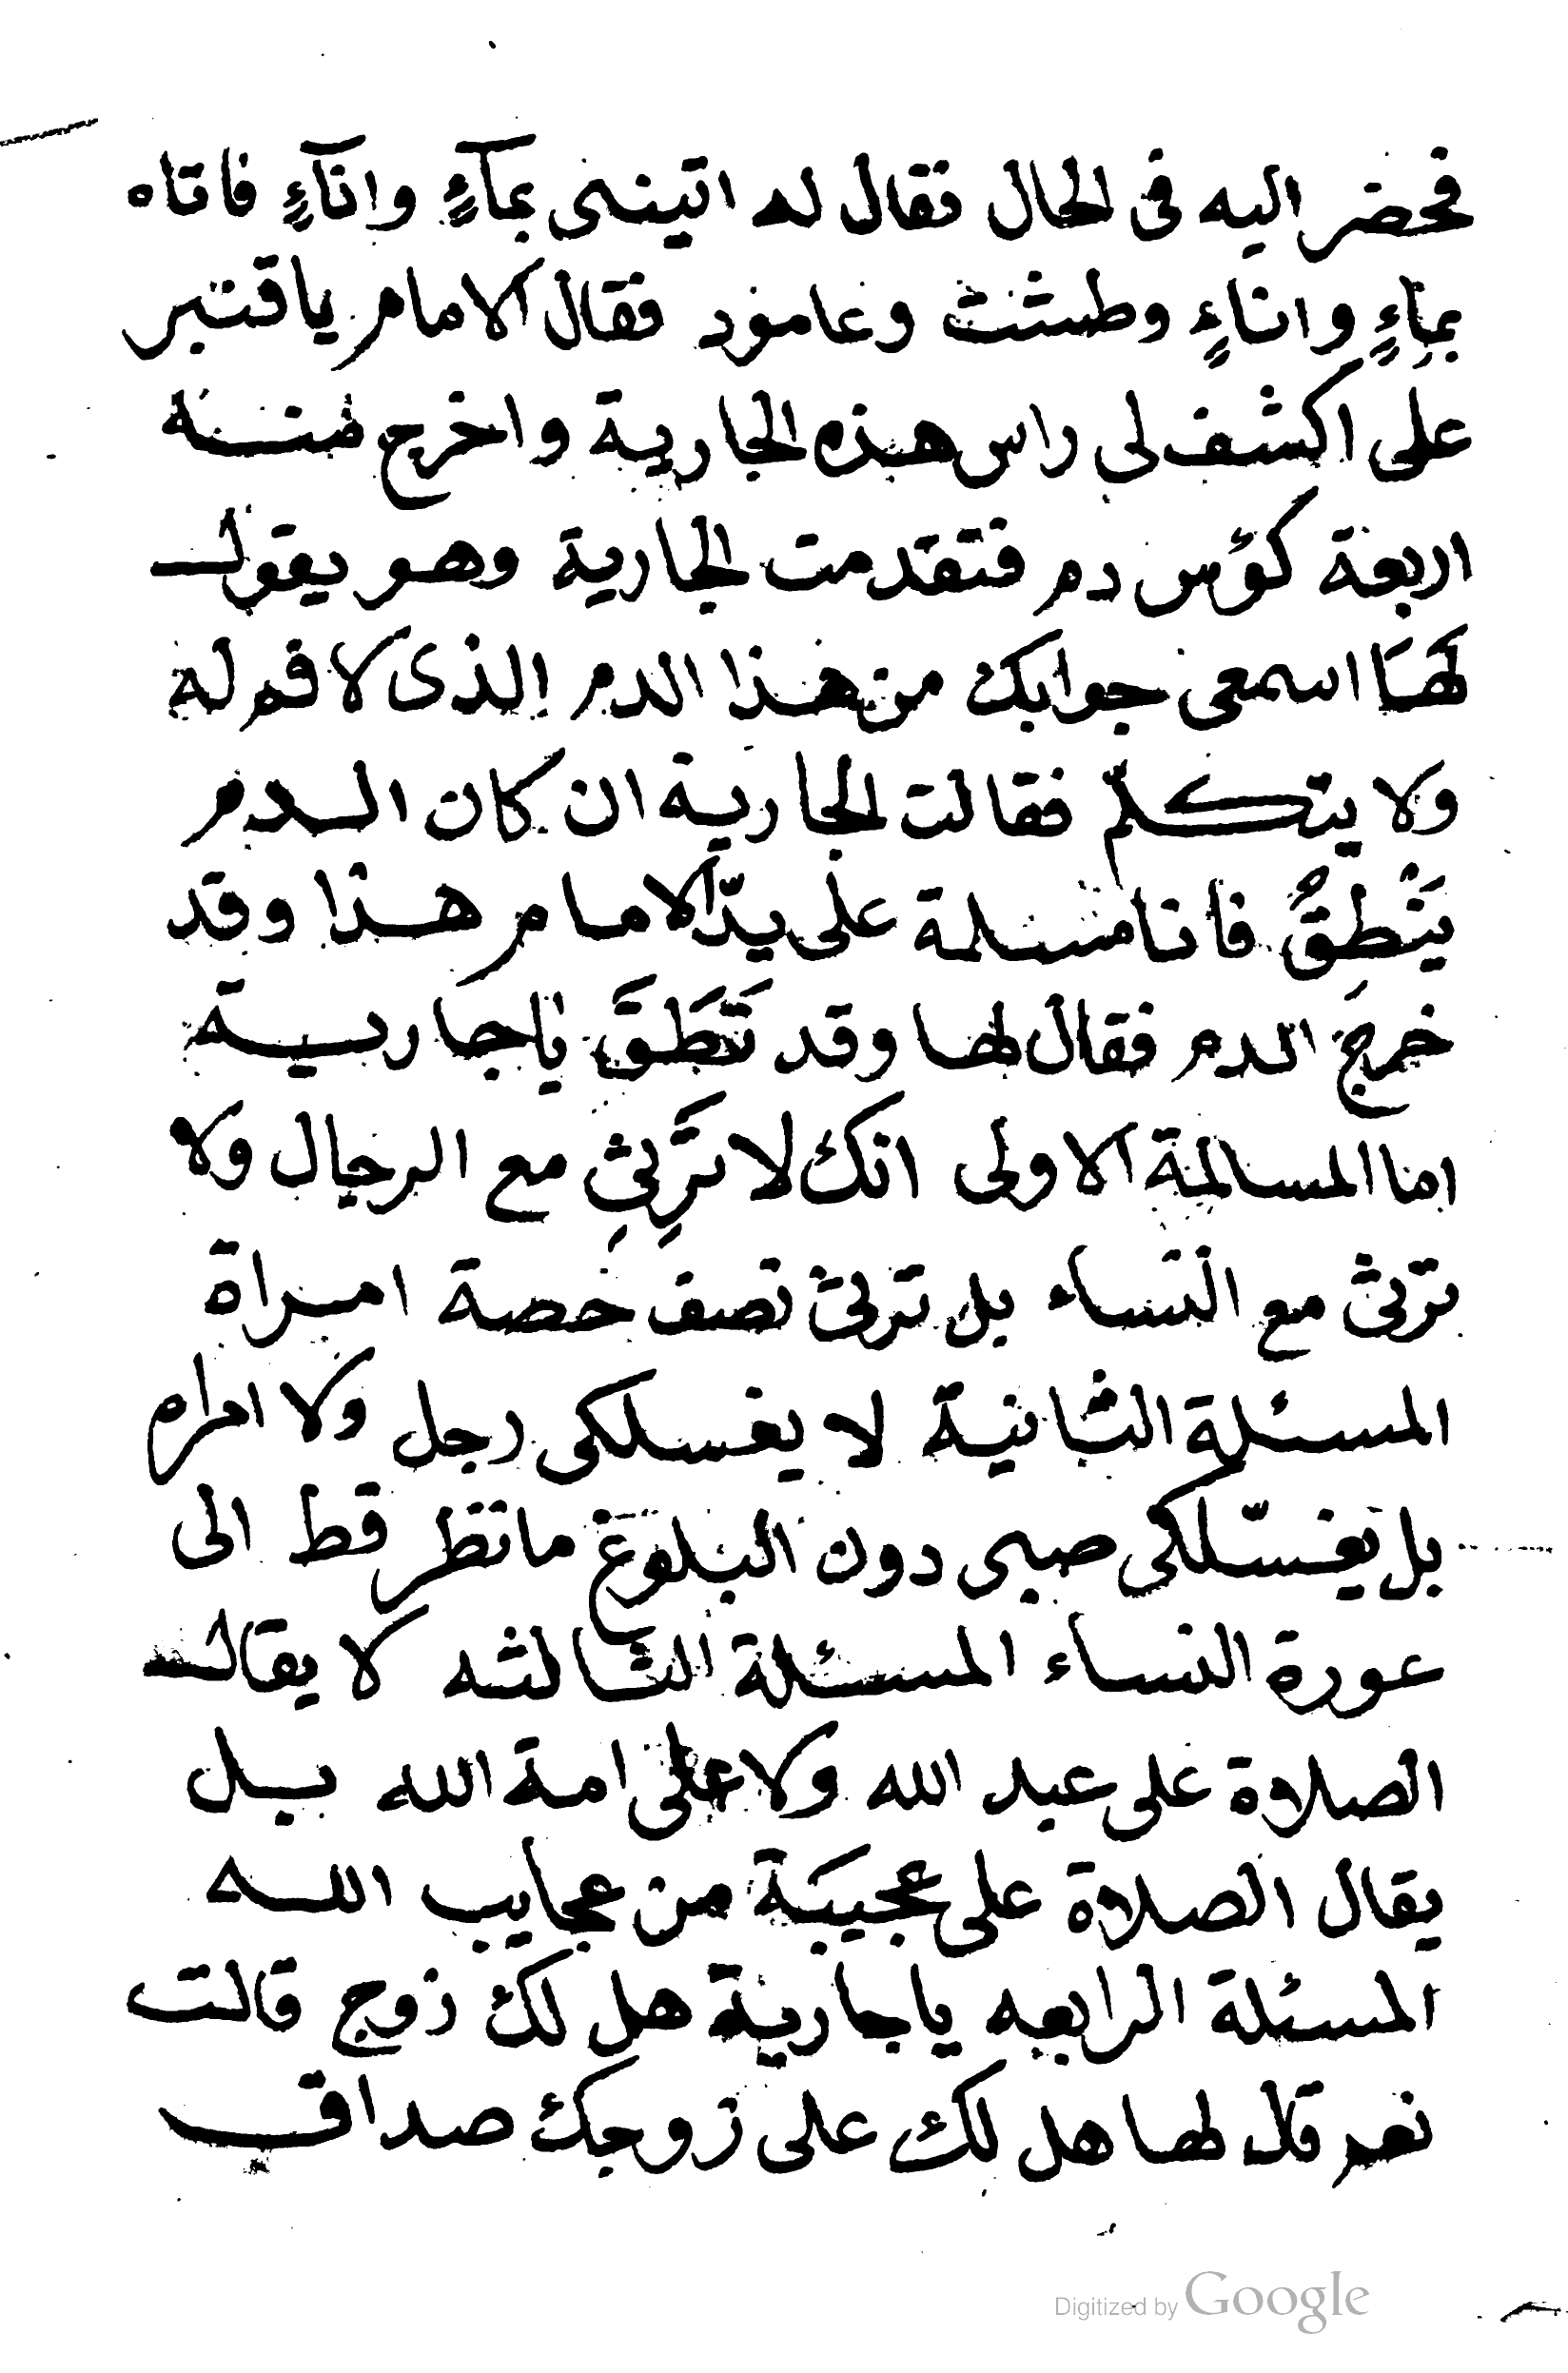 فحضر اليه فى الحال فقال له اتينى بمآءٍ وانآءٍ فاتاه
بماءٍ واناءٍ وطشت وعامود فقال الامام يا قنبر
على اكشف لى راس هذه الجارية واخرج منه
اربعة كؤس دم فتقدمت الجارية وهو يقول
لهَا اسمعى جوابك من هذا الدم الذى لا فم له
ولا يتكلّم فقالت الجارية ان كان الدم
يَنْطِقُ فانا مسلمة على يدّ الامام هذا وقد
خرجَ الدم فقال لها وقد نَطَقَ يا جارية
اما المسالمة الاولى انك لا تَرِثِ مع الرجال ولا
ترثى مع النساء بل ترثى نصف حصة امراة
المسئلة الثانية لا يغسلكى رجل ولا امراه
بل يغسّلكى صبى دون البلوغ ما نظر قط الى
عورة النساء المسئلة الثالثه لا يقال
الصلاة على عبد الله ولا على امة الله بل
يقال الصلاة على عجيبَة من عجايب الله
المسئلة الرابعه يا جارية هل لك زوج قالت
نعم قال لها هل لك على زوجك صداق
Digitized by Google